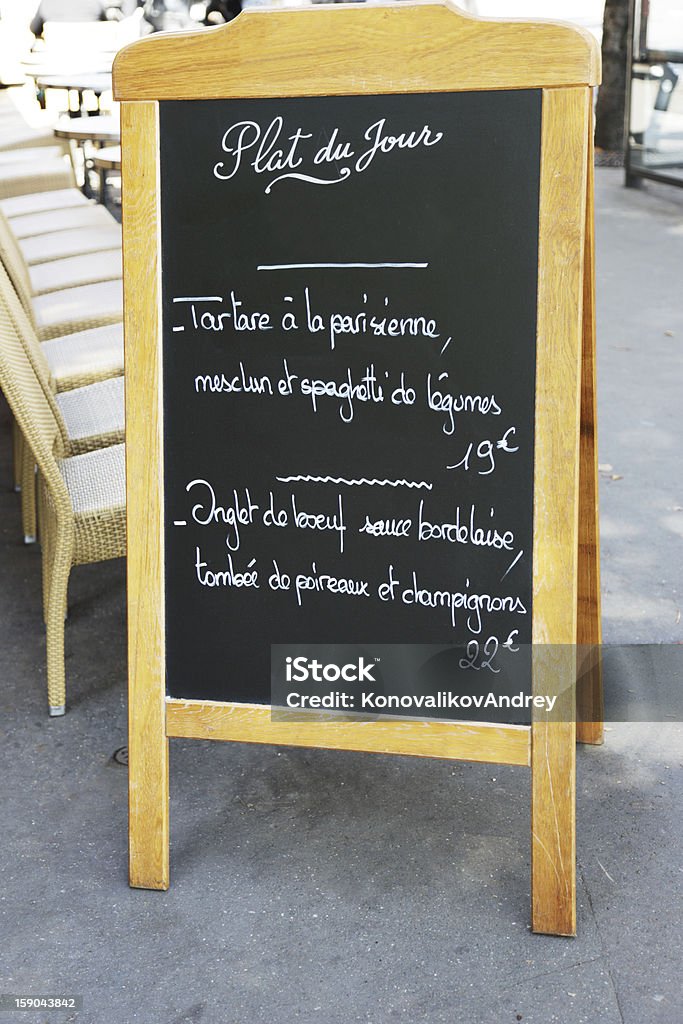 Plat du Jour
- Tartare à la parisienne,
mesclun et spaghetti de légumes
19€
- Onglet de boeuf sauce bordelaise,
tombée de poireaux et champignons
22€
iStock™
Credit: KonovalikovAndrey
159043842